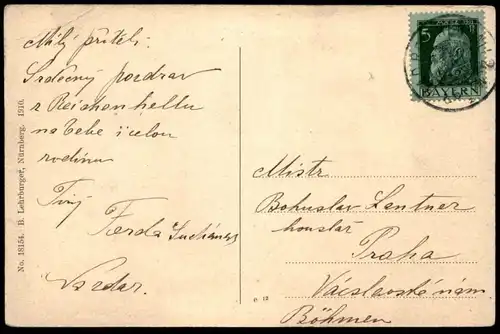 Milý příteli.
Srdečný pozdrav
z Reichenhallu
na Tebe i celou
rodinu
Tvůj
Ferda
No. 18154. B. Lehrburger, Nürnberg. 1910.
5
BAYERN
Mistr
Bohuslav Lentner
houslař
Praha
Václavské nám.
Böhmen